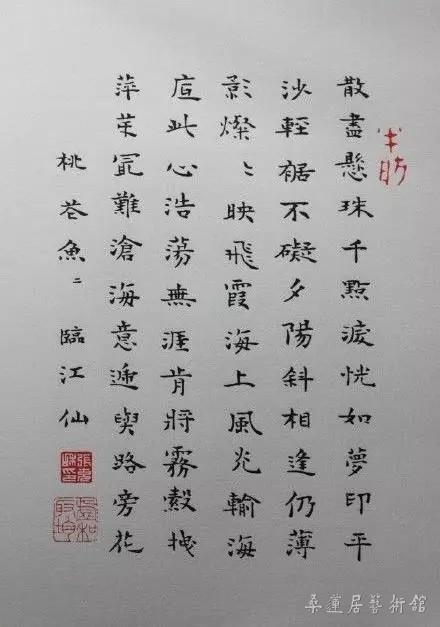 半舫
散盡懸珠千點淚恍如夢印平
沙輕裾不礙夕陽斜相逢仍薄
影燦〻映飛霞海上風光輸海
底此心浩蕩無涯肯將霧縠拽
萍芽冣難滄海意遞與路旁花
桃花魚〻臨江仙
桑蓮居藝術館